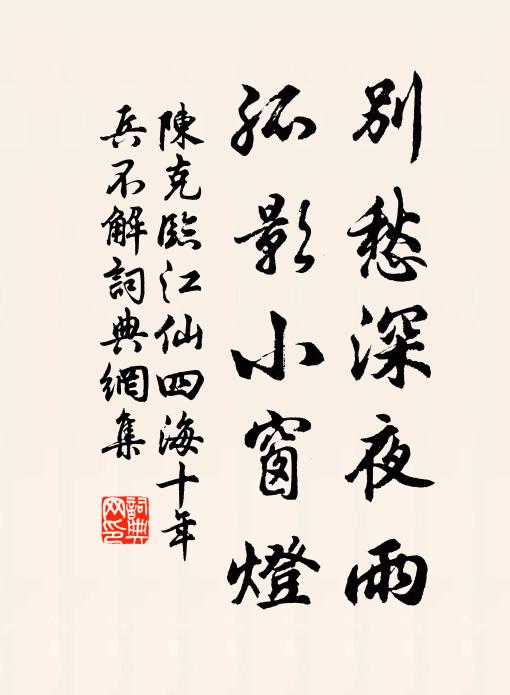 別愁深夜雨
孤影小窗燈
陳克臨江仙四海十年
兵不解詞典網集
詞典
网印